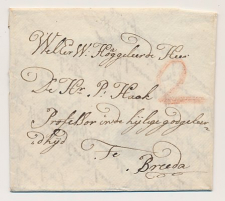 Weller W. Hooggeleerde Heer
De Hr. P. Haak
Professor in de hylige godgeleer
dhyd
Te
Breeda
2